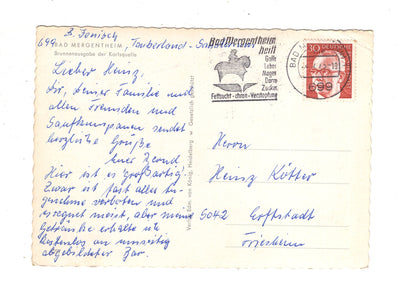 B. Jonisch
699 Tauberland-
BAD MERGENTHEIM,
Brunnenausgabe der Karlsquelle
Bad Mergentheim
heilt
Galle
Leber
Magen
Darm
Zucker
Fettsucht - chron. Verstopfung
BAD M
699
30
DEUTSCHE BUNDESPOST
Lieber Heinz,
Dir, Deiner Familie und
allen Freunden und
Saufkumpanen sendet
herzliche Grüße
Euer
Hier ist es großartig.
Zwar ist fast alles An-
genehme verboten und
es regnet meist, aber meine
Getränke erhalte ich
kostenlos an umseitig
abgebildeter Bar.
Gesetzlich geschützt
Verlag Edm. von König, Heidelberg
Herrn
Heinz Kötter
5042 Erftstadt
Friesheim